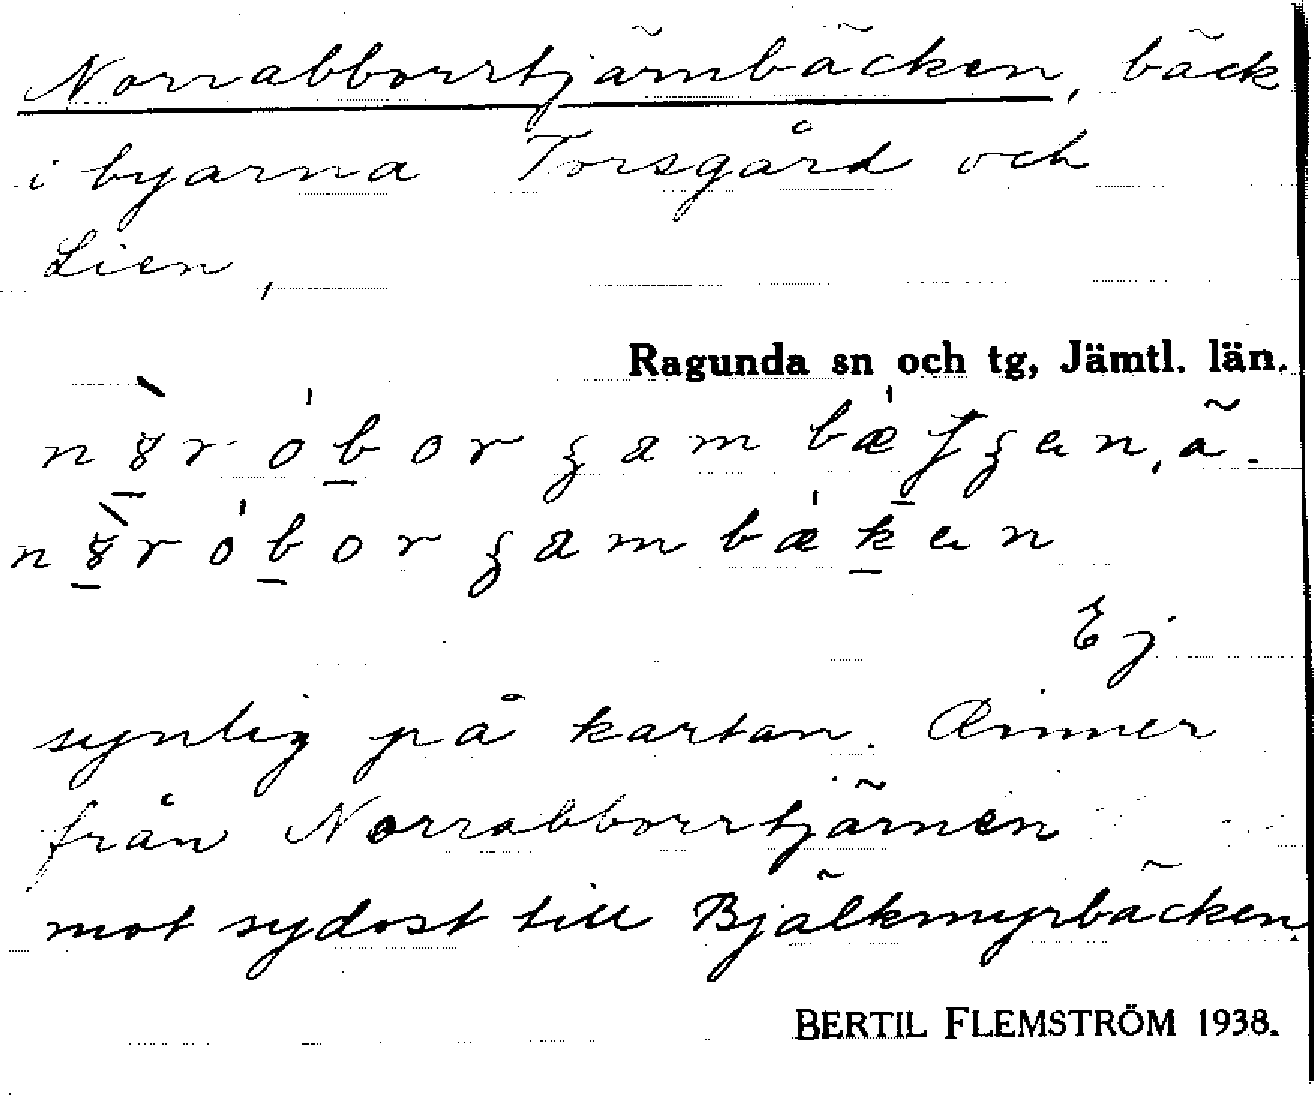 Norrabborrtjärnbäcken, bäck
i byarna Torsgård och
Lien,
Ragunda sn och tg, Jämtl. län.
Ej
synlig på kartan. Rinner
från Norrabborrtjärnen
mot sydost till Bjälkmyrbäcken.
BERTIL FLEMSTRÖM 1938.